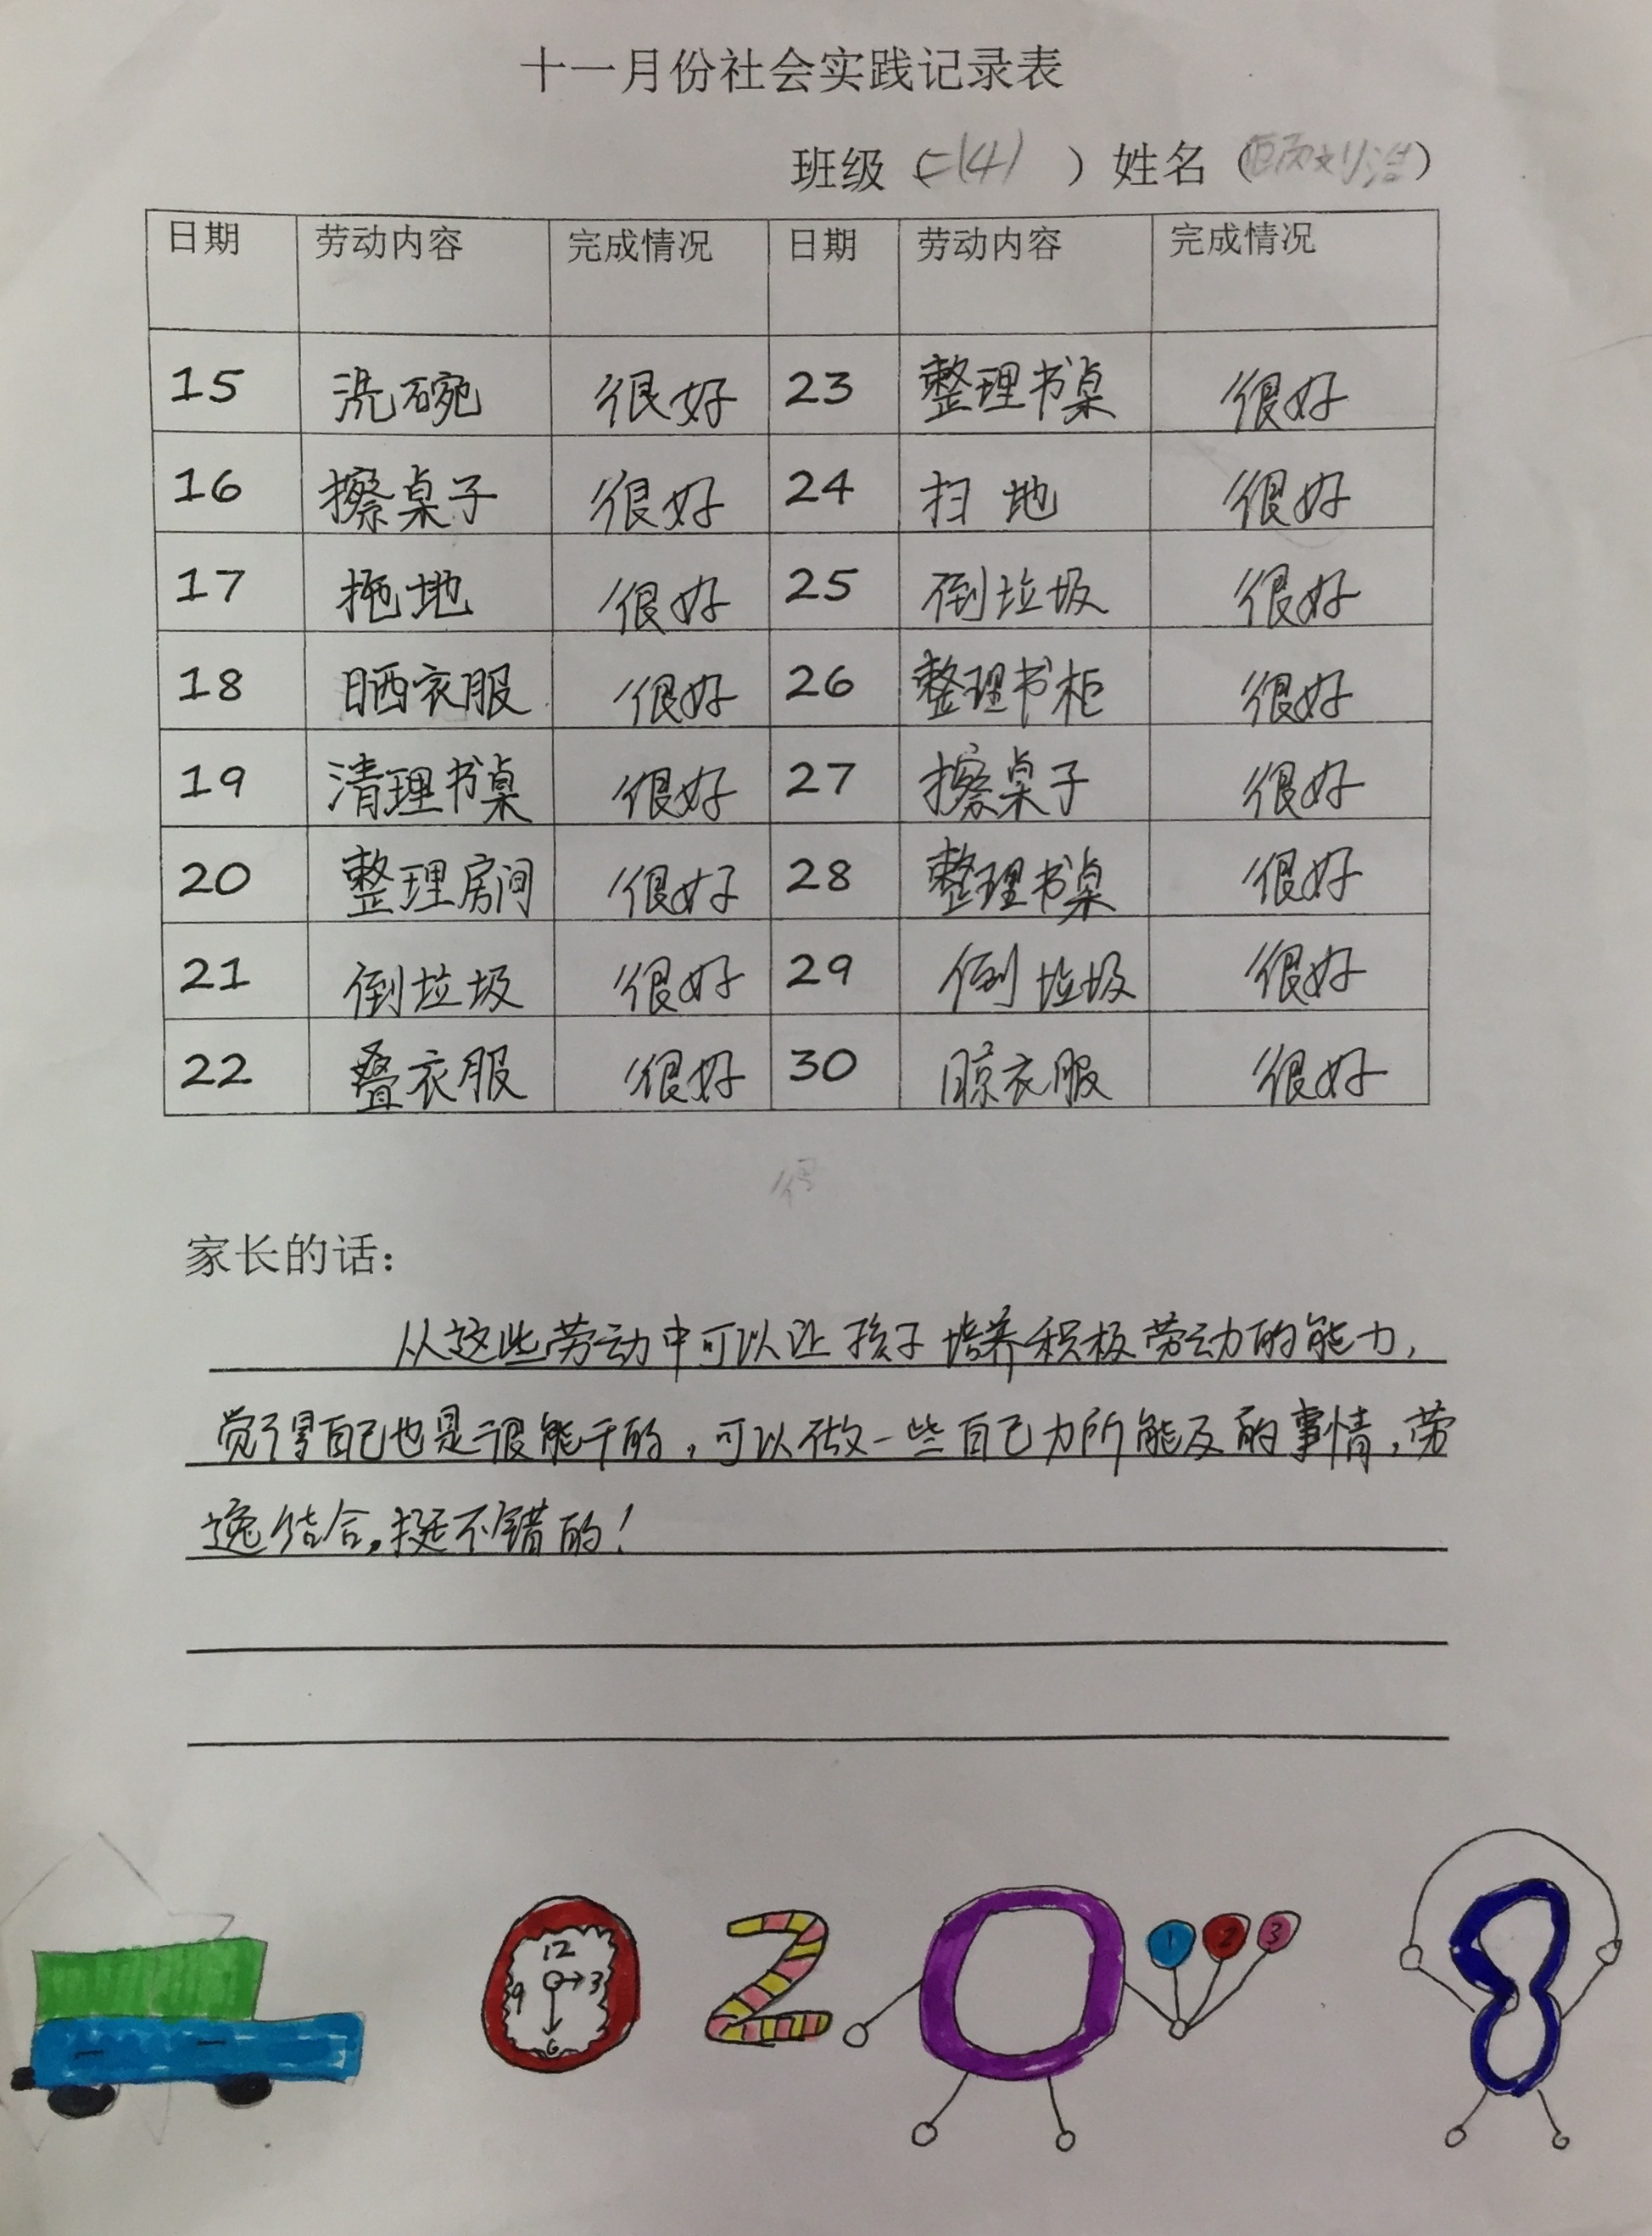 十一月份社会实践记录表
班级（二(4)）姓名（顾刘浩）
日期 劳动内容 完成情况 日期 劳动内容 完成情况
15 洗碗 很好 23 整理书桌 很好
16 擦桌子 很好 24 扫地 很好
17 拖地 很好 25 倒垃圾 很好
18 晒衣服 很好 26 整理书柜 很好
19 清理书桌 很好 27 擦桌子 很好
20 整理房间 很好 28 整理书桌 很好
21 倒垃圾 很好 29 倒垃圾 很好
22 叠衣服 很好 30 晾衣服 很好
家长的话：
从这些劳动中可以让孩子培养积极劳动的能力，
觉得自己也是很能干的，可以做一些自己力所能及的事情，劳
逸结合。挺不错的！
12
9 3
6
2 0 8
1 2 3